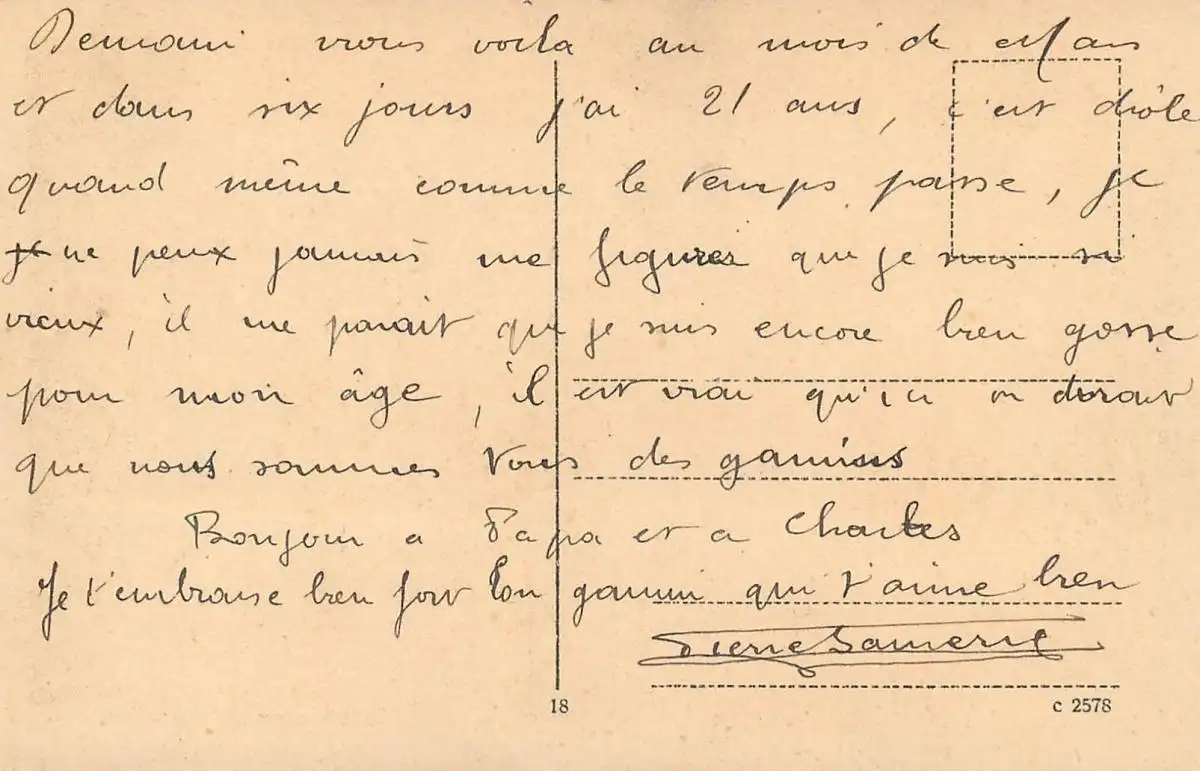 Demain nous voila au mois de Mars
et dans six jours j'ai 21 ans, c'est drôle
quand même comme le temps passe, je
je ne peux jamais me figurer que je suis si
vieux, il me parait que je suis encore bien gosse
pour mon âge, il est vrai qu'ici on dirait
que nous sommes tous des gamins
Bonjour a Papa et a Charles
Je t'embrasse bien fort ton gamin qui t'aime bien
Pierre
18
c 2578